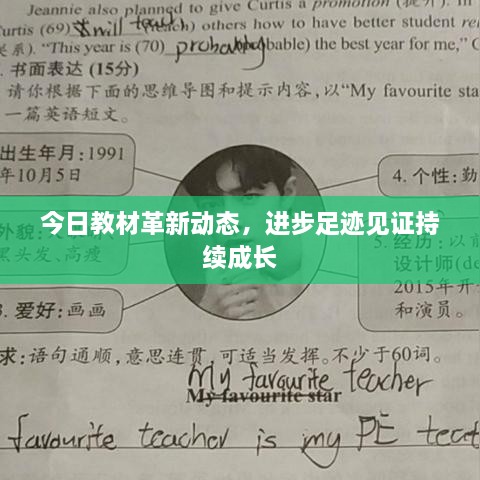 Jeannie also planned to give Curtis a promotion (提升). In
Curtis (69) will teach (teach) others how to have better student
关系). "This year is (70) probably (probable) the best year for me," C
. 书面表达 (15分)
请你根据下面的思维导图和提示内容,以“My favourite sta
一篇英语短文。
出生年月:1991
年10月5日
4. 个性:勤
今日教材革新动态，进步足迹见证持
续成长
外貌:
黑头发、高瘦
5. 经历:以前
设计师(de
2015年开
和演员。
3. 爱好:画画
求:语句通顺,意思连贯,可适当发挥。不少于60词。
My favourite teacher
My favourite star
favourite teacher is my PE teac